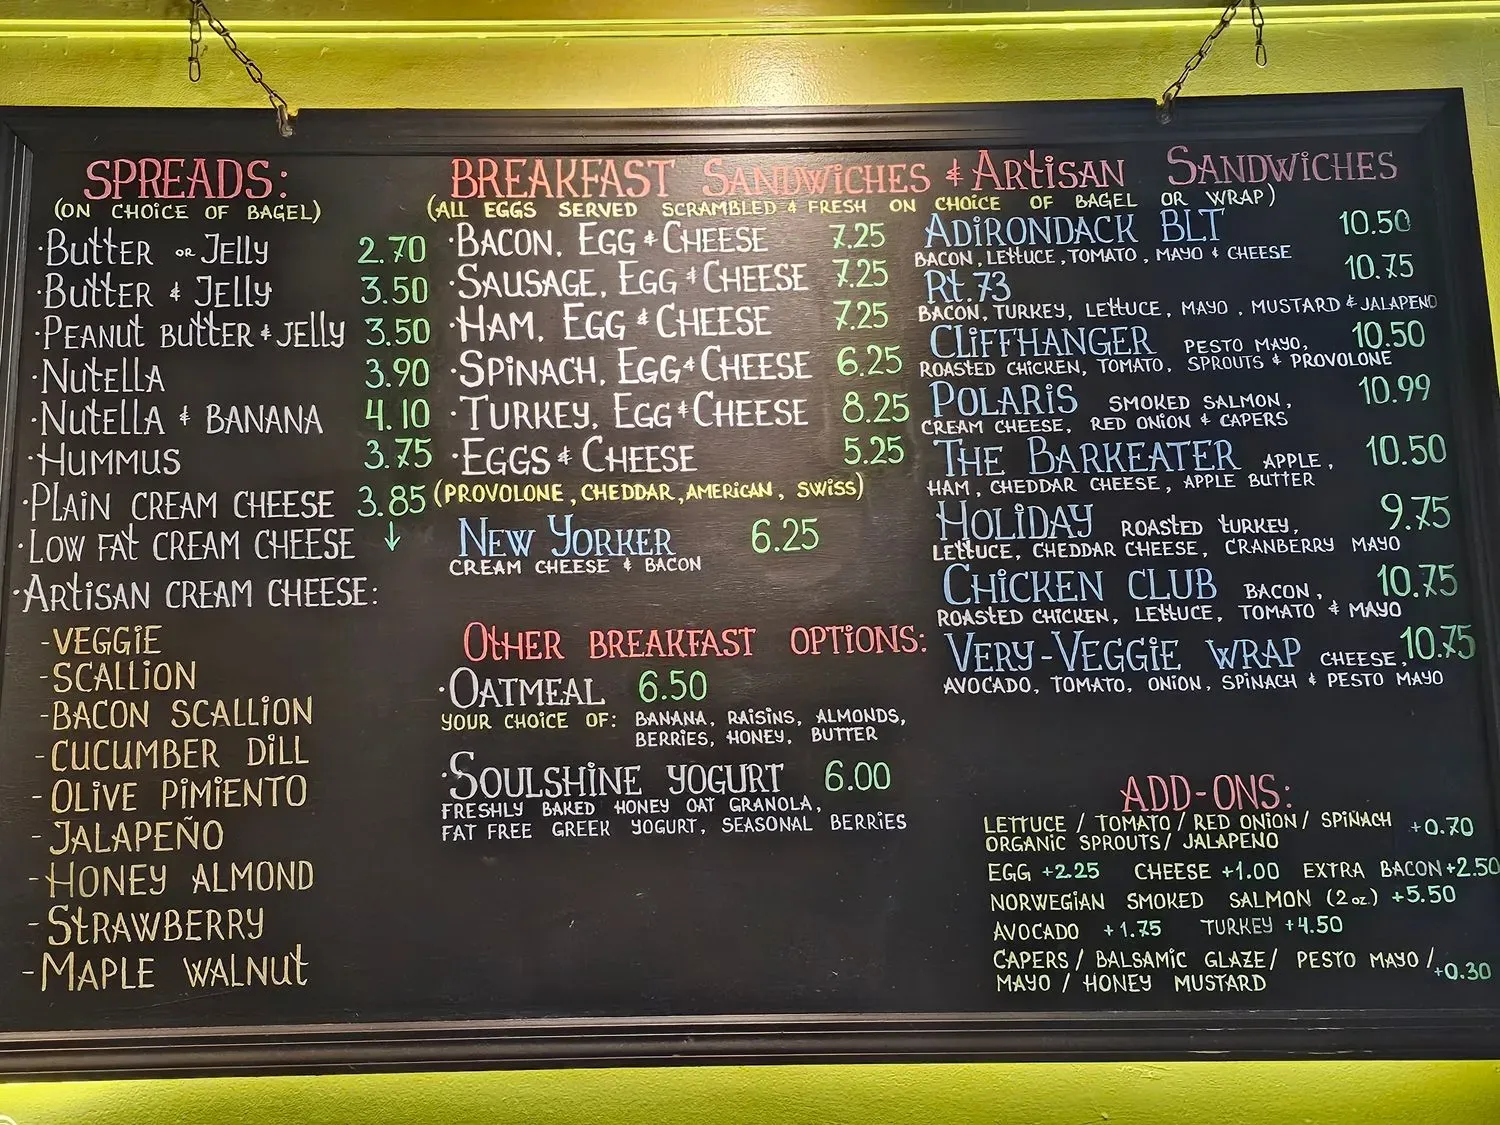 SPREADS:
(ON CHOICE OF BAGEL)
·Butter or Jelly 2.70
·Butter & Jelly 3.50
·Peanut butter & Jelly 3.50
·Nutella 3.90
·Nutella & Banana 4.10
·Hummus 3.75
·Plain cream cheese 3.85
·Low fat cream cheese ↓
·Artisan cream cheese:
-Veggie
-Scallion
-Bacon Scallion
-Cucumber Dill
-Olive Pimiento
-Jalapeño
-Honey Almond
-Strawberry
-Maple Walnut
BREAKFAST Sandwiches & Artisan Sandwiches
(ALL EGGS SERVED SCRAMBLED & FRESH ON CHOICE OF BAGEL OR WRAP)
·Bacon, Egg & Cheese 7.25
·Sausage, Egg & Cheese 7.25
·Ham, Egg & Cheese 7.25
·Spinach, Egg & Cheese 6.25
·Turkey, Egg & Cheese 8.25
·Eggs & Cheese 5.25
(PROVOLONE, CHEDDAR, AMERICAN, SWISS)
New Yorker 6.25
CREAM CHEESE & BACON
Other breakfast options:
·Oatmeal 6.50
YOUR CHOICE OF: BANANA, RAISINS, ALMONDS,
BERRIES, HONEY, BUTTER
·Soulshine yogurt 6.00
FRESHLY BAKED HONEY OAT GRANOLA,
FAT FREE GREEK YOGURT, SEASONAL BERRIES
Adirondack BLT 10.50
BACON, LETTUCE, TOMATO, MAYO & CHEESE
Rt.73 10.75
BACON, TURKEY, LETTUCE, MAYO, MUSTARD & JALAPENO
Cliffhanger PESTO MAYO, 10.50
ROASTED CHICKEN, TOMATO, SPROUTS & PROVOLONE
Polaris SMOKED SALMON, 10.99
CREAM CHEESE, RED ONION & CAPERS
The Barkeater APPLE, 10.50
HAM, CHEDDAR CHEESE, APPLE BUTTER
Holiday ROASTED TURKEY, 9.75
LETTUCE, CHEDDAR CHEESE, CRANBERRY MAYO
Chicken club BACON, 10.75
ROASTED CHICKEN, LETTUCE, TOMATO & MAYO
Very-Veggie wrap CHEESE, 10.75
AVOCADO, TOMATO, ONION, SPINACH & PESTO MAYO
ADD-ONS:
LETTUCE / TOMATO / RED ONION / SPINACH +0.70
ORGANIC SPROUTS / JALAPENO
EGG +2.25 CHEESE +1.00 EXTRA BACON +2.50
NORWEGIAN SMOKED SALMON (2 oz.) +5.50
AVOCADO +1.75 TURKEY +4.50
CAPERS / BALSAMIC GLAZE / PESTO MAYO /
MAYO / HONEY MUSTARD +0.30